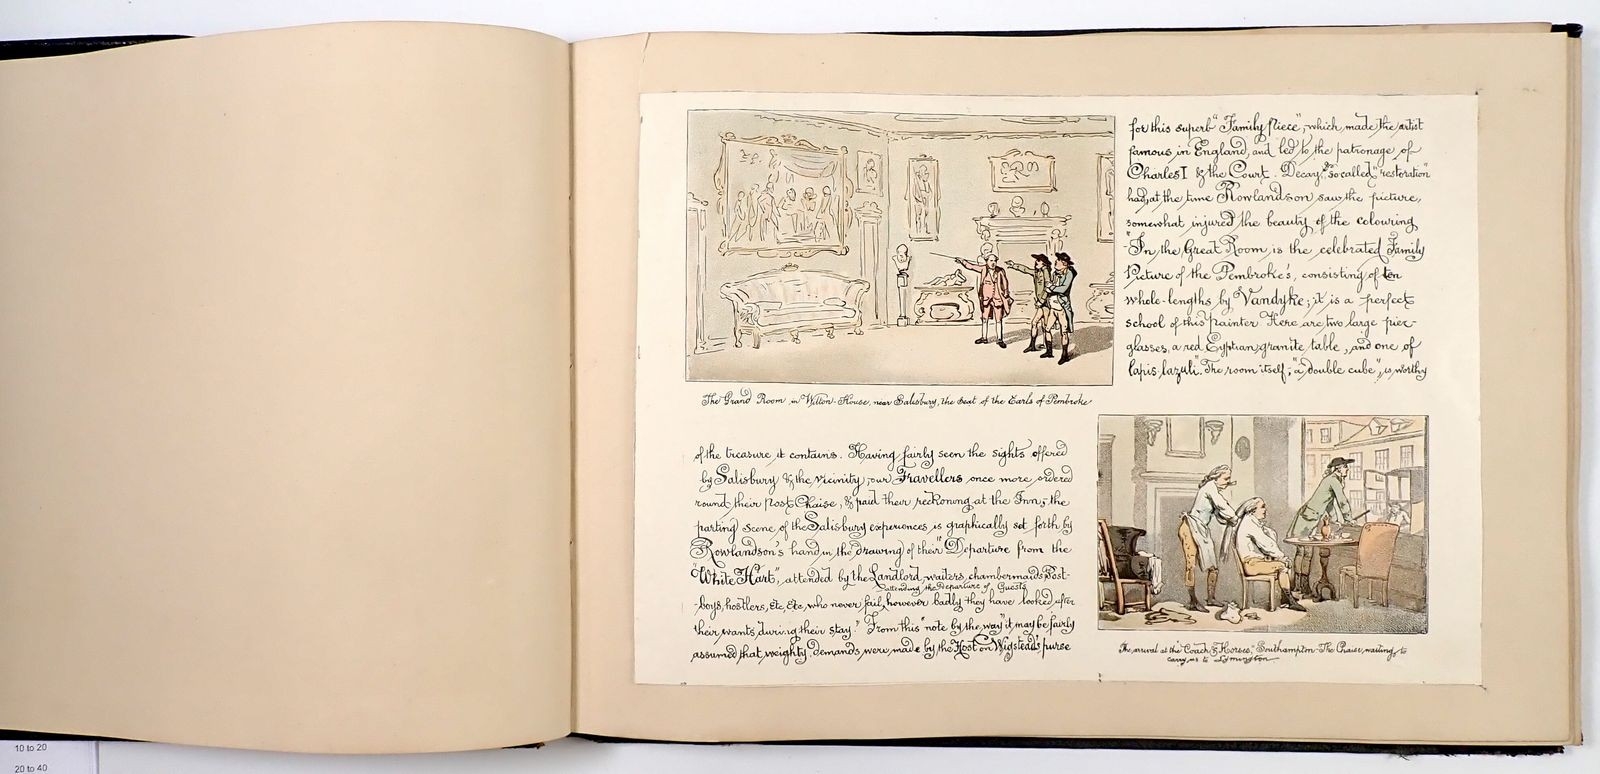 for this superb "Family Piece", which made the artist
famous in England, and led to the patronage of
Charles I & the Court. Decay, & so called "restoration"
had, at the time Rowlandson saw the picture,
somewhat injured the beauty of the colouring
"In the Great Room is the celebrated Family
Picture of the Pembroke's, consisting of ten
whole-lengths by Vandyke; it is a perfect
school of this painter Here are two large pier-
glasses, a red Egyptian granite table, and one of
lapis lazuli". The room itself, "a double cube", is worthy
The Grand Room in Wilton-House, near Salisbury, the Seat of the Earls of Pembroke
of the treasure it contains. Having fairly seen the sights offered
by Salisbury & the vicinity, our Travellers once more ordered
round their Post Chaise, & paid their reckoning at the Inn; the
parting scene of the Salisbury experiences is graphically set forth by
Rowlandson's hand in the drawing of their "Departure from the
"White Hart", attended by the Landlord, waiters, chambermaids, Post-
attending the Departure of Guests
-boys, hostlers, etc, etc, who never fail, however badly they have looked after
their wants during their stay." From this "note by the way" it may be fairly
assumed that weighty demands were made by the Host on Wigstead's purse
The arrival at the "Coach & Horses," Southampton - The Chaise, waiting to
carry us to Lymington
10 to 20
20 to 40